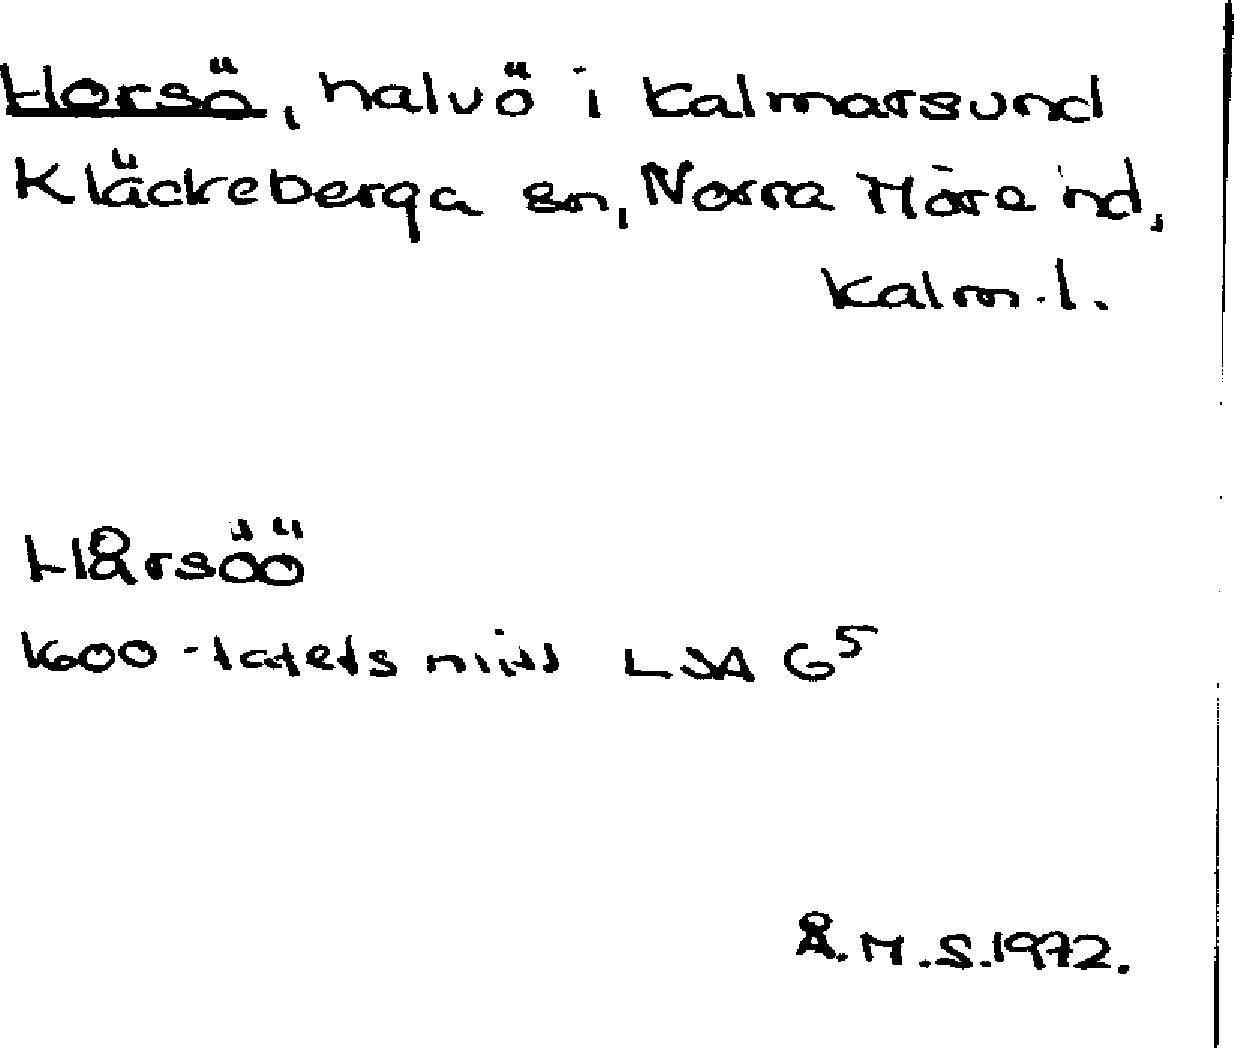 Horsö, halvö i Kalmarsund
Kläckeberga sn, Norra Möre hd,
Kalm.l.
Hårsöö
1600-talets mitt LSA G5
Å.M.S.1972.